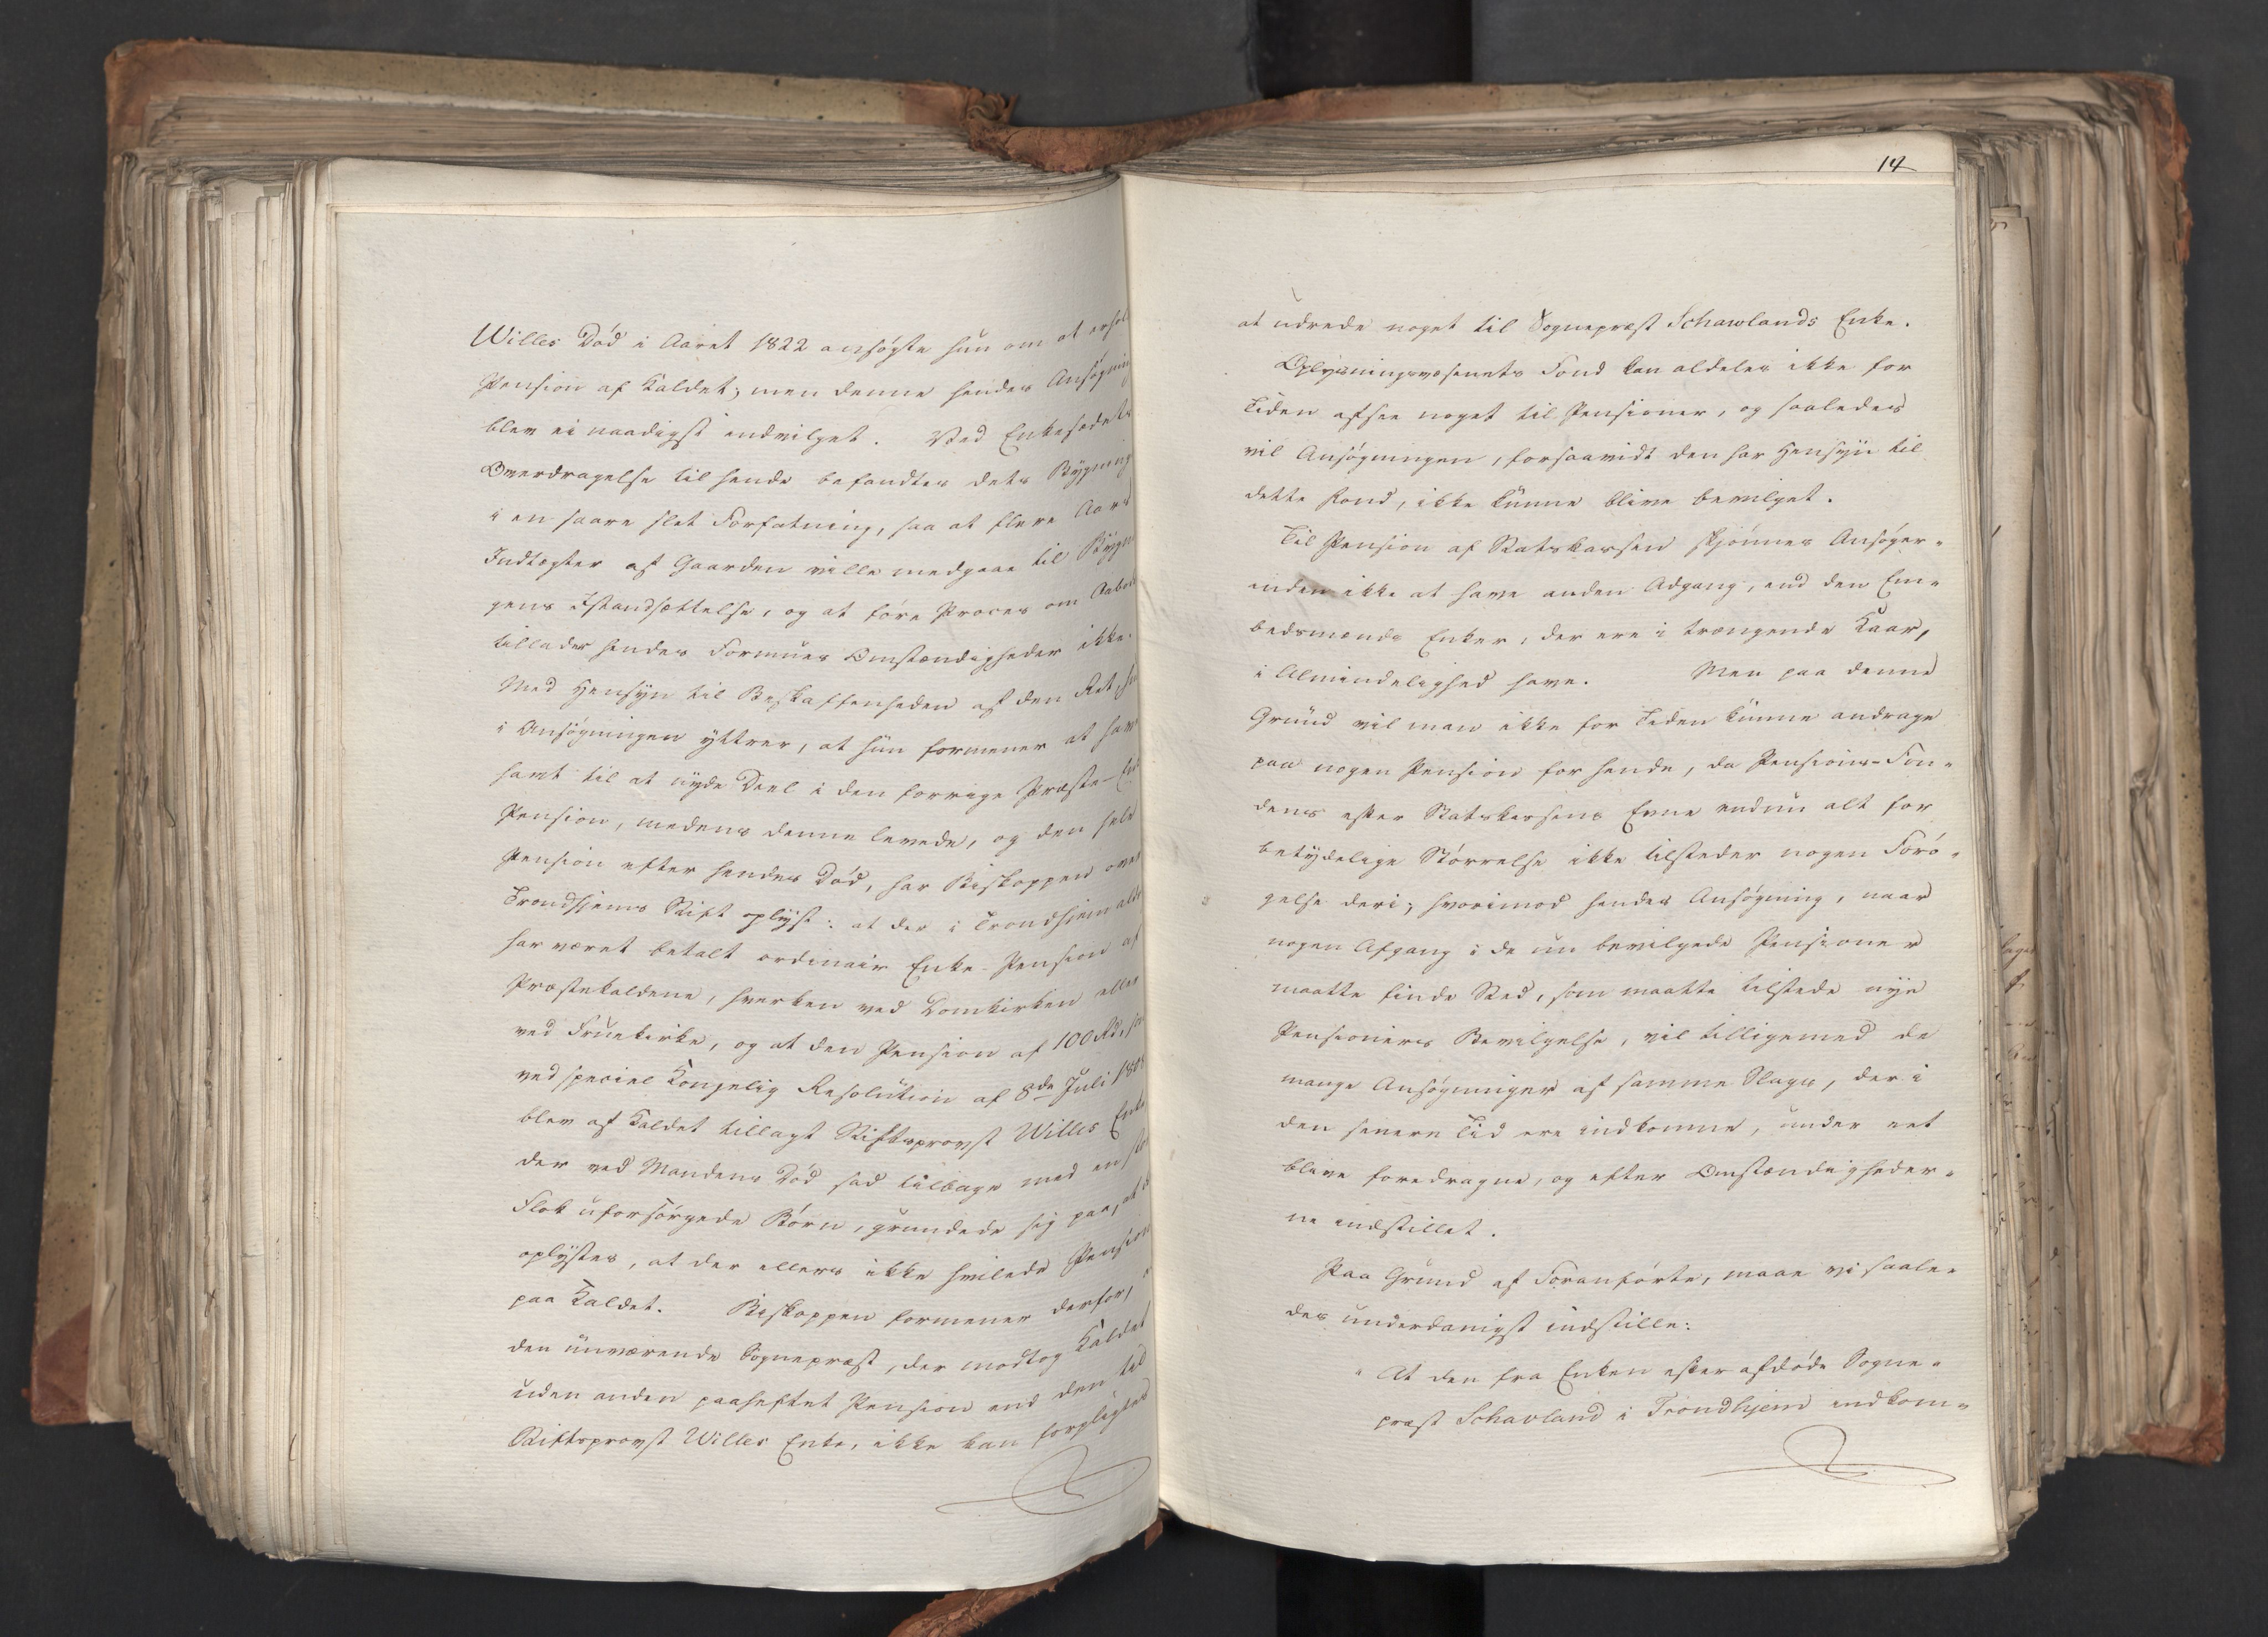 Willes Død i Aaret 1822 ansøgte hun om at erhol
Pension af Kaldet; men denne hendes Ansøgning
blev ei naadigst indvilget. Ved Enkesædets
Overdragelse til hende befandtes dets Bygning
i en saare slet Forfatning, saa at flere Aars
Indtægter af Gaarden ville medgaae til Bygn
gens Istandsættelse, og at føre Proces om Aabod
tillader hendes Formues Omstændigheder ikke.
Med Hensyn til Beskaffenheden af den Ret, hu
i Ansøgningen yttrer, at hun formener at have
havt til at nyde Deel i den forrige Præste-Enk
Pension, medens denne levede, og den hele
Pension efter hendes Død, har Biskoppen over
Trondhjems Stift oplyst: at der i Trondhjem aldr
har været betalt ordinair Enke-Pension af
Præstekaldene, hverken ved Domkirken eller
ved Fruekirke, og at den Pension af 100 Rd, so
ved speciel Kongelig Resolution af 8de Juli 180
blev af Kaldet tillagt Stiftsprovst Willes Enke
der ved Mandens Død sad tilbage med en stor
Flok uforsørgede Børn, grundede sig paa, at d
oplystes, at der ellers ikke hvilede Pension
paa Kaldet. Biskoppen formener derfor, a
den nuværende Sognepræst, der modtog Kaldet
uden anden paaheftet Pension end den til
Stiftsprovst Willes Enke, ikke kan forpligtes
14
at udrede noget til Sognepræst Schawlands Enke.
Oplysningsvæsenets Fond kan aldeles ikke for
Tiden afsee noget til Pensioner, og saaledes
vil Ansøgningen, forsaavidt den har Hensyn til
dette Fond, ikke kunne blive bevilget.
Til Pension af Statskassen skjønnes Ansøger-
inden ikke at have anden Adgang, end den Em-
bedsmænds Enker, der ere i trængende Kaar,
i Almindelighed have. Men paa denne
Grund vil man ikke for Tiden kunne andrage
paa nogen Pension for hende, da Pensions-Fon-
dens efter Statskassens Evne endnu alt for
betydelige Størrelse ikke tilsteder nogen Forø-
gelse deri; hvorimod hendes Ansøgning, naar
nogen Afgang i de nu bevilgede Pensioner
maatte finde Sted, som maatte tilstede nye
Pensioners Bevilgelse, vil tilligemed de
mange Ansøgninger af samme Slags, der i
den senere Tid ere indkomne, under eet
blive foredragne, og efter Omstændigheder-
ne indstillet.
Paa Grund af Foranførte, maae vi saale-
des underdanigst indstille:
" At den fra Enken efter afdøde Sogne-
præst Schavland i Trondhjem indkom-